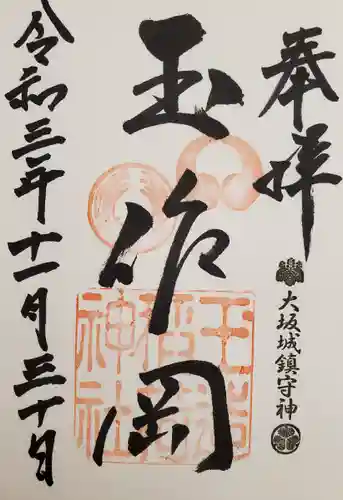 奉拝
大坂城鎮守神
玉作岡
玉造稲荷神社
令和三年十一月三十日